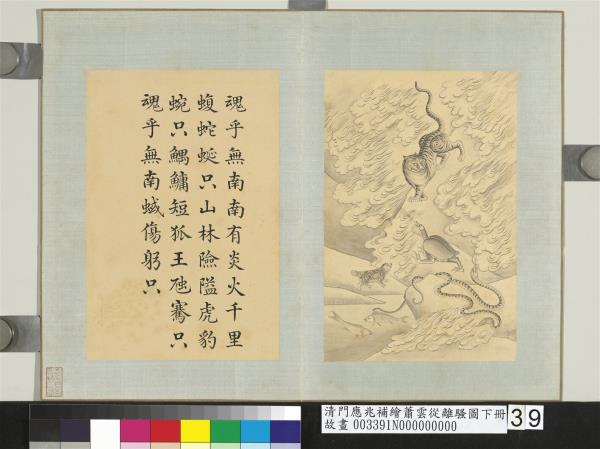 魂乎無南南有炎火千里
蝮蛇蜒只山林險隘虎豹
蜿只鰅鱅短狐王虺騫只
魂乎無南蜮傷躬只
清門應兆補繪蕭雲從離騷圖下冊
故畫 003391N000000000
39